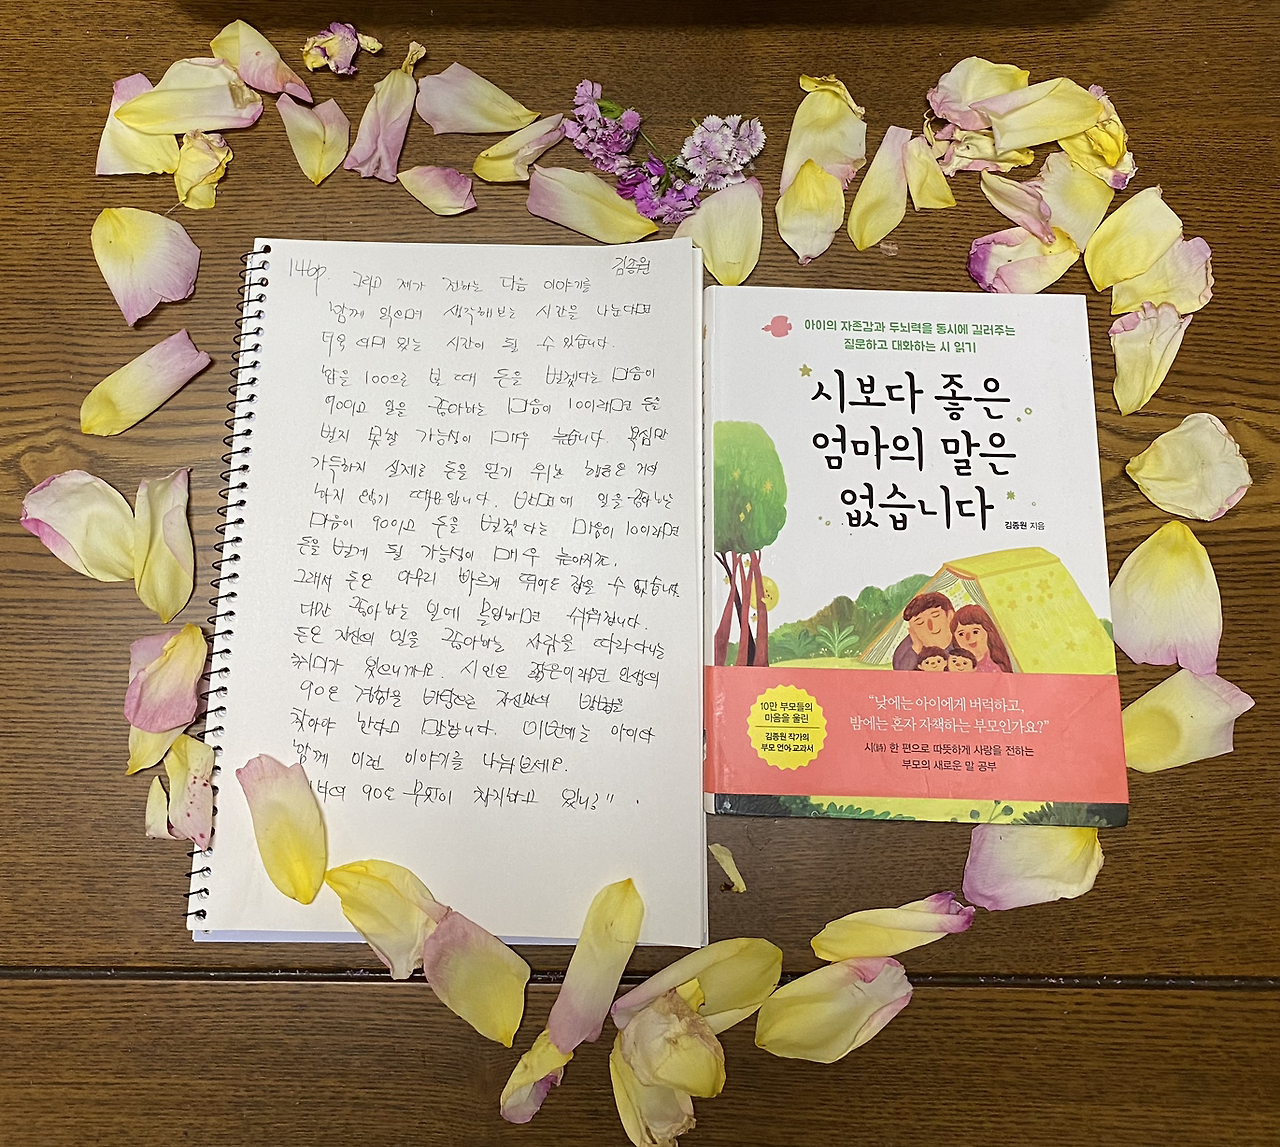 146p.
김종원
그리고 제가 전하는 다음 이야기를
함께 읽으며 생각해보는 시간을 나눈다면
더욱 의미 있는 시간이 될 수 있습니다.
합을 100으로 볼 때 돈을 벌겠다는 마음이
90이고 일을 좋아하는 마음이 10이라면 돈을
벌지 못할 가능성이 매우 높습니다. 욕심만
가득하지 실제로 돈을 벌기 위한 행동은 거의
하지 않기 때문입니다. 반면에 일을 좋아하는
마음이 90이고 돈을 벌겠다는 마음이 10이라면
돈을 벌게 될 가능성이 매우 높아지죠.
그래서 돈은 아무리 빠르게 뛰어도 잡을 수 없습니다.
다만 좋아하는 일에 몰입하면 쉬워집니다.
돈은 자신의 일을 좋아하는 사람을 따라다니는
취미가 있으니까요. 시인은 젊은이라면 인생의
90은 경험을 바탕으로 자신만의 방향을
찾아야 한다고 말합니다. 이번에는 아이와
함께 이런 이야기를 나눠보세요.
90은 무엇이 차지하고 있니?".
아이의 자존감과 두뇌력을 동시에 길러주는
질문하고 대화하는 시 읽기
시보다 좋은
엄마의 말은
없습니다
김종원 지음
10만 부모들의
마음을 울린
김종원 작가의
부모 언어 교과서
“낮에는 아이에게 버럭하고,
밤에는 혼자 자책하는 부모인가요?”
시(詩) 한 편으로 따뜻하게 사랑을 전하는
부모의 새로운 말 공부